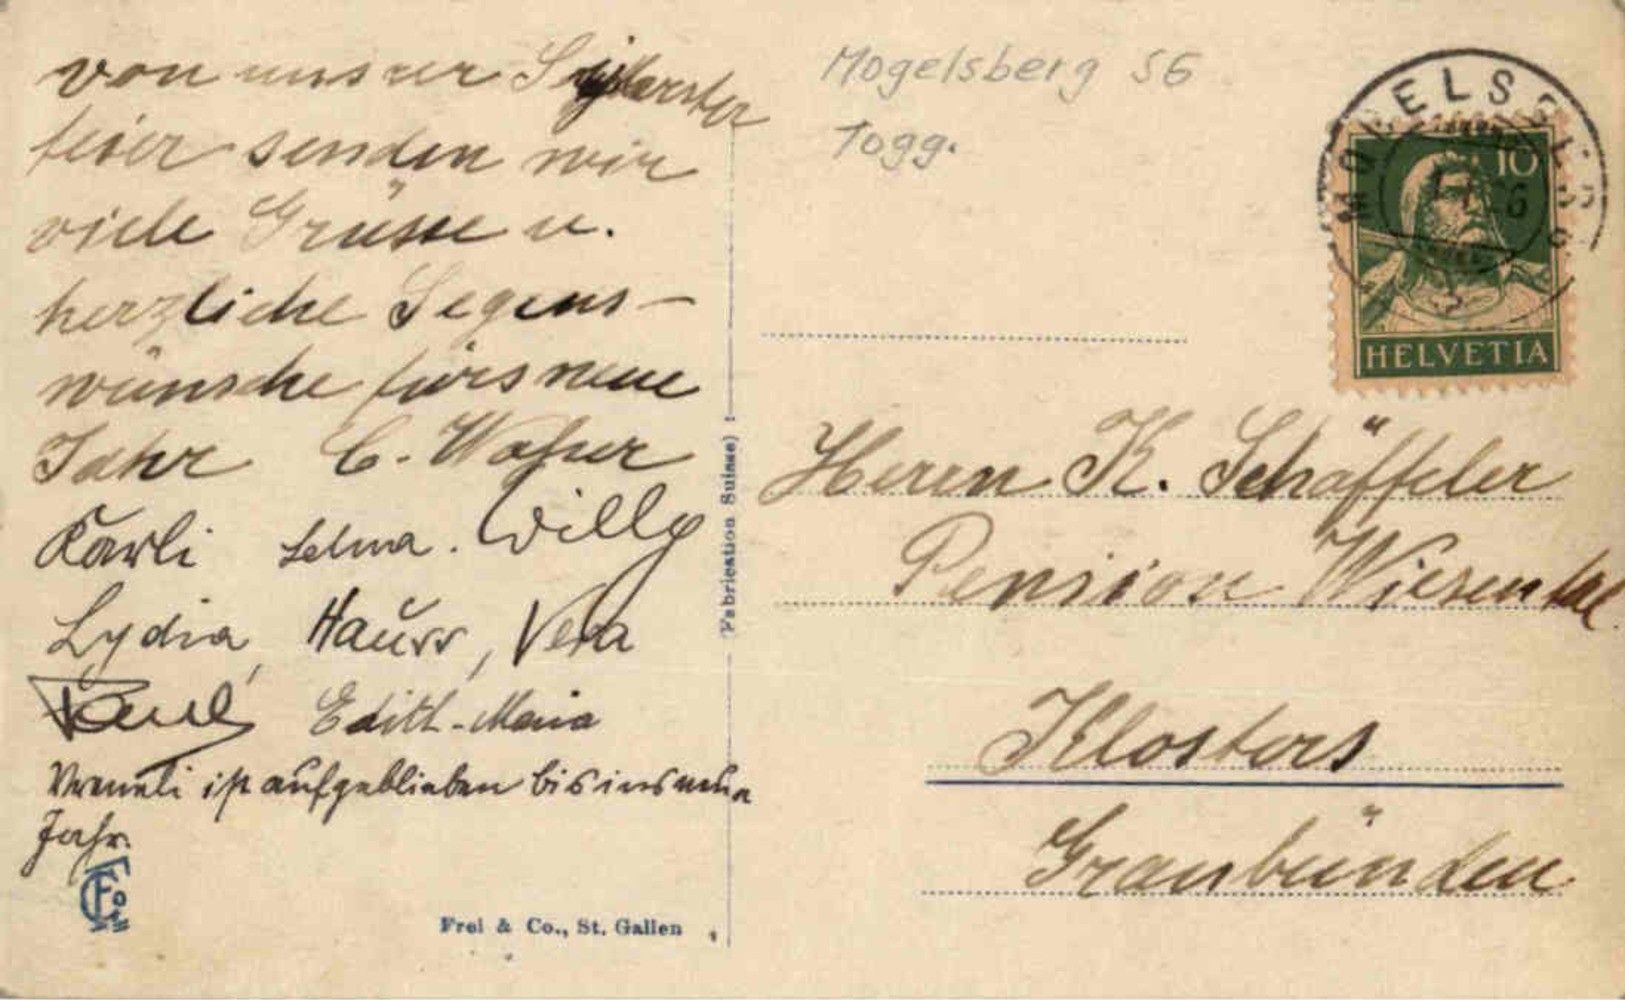 von unsrer Sylvester
feier senden wir
viele Grüsse u.
herzliche Segens-
wünsche fürs neue
Jahr C.
Karli Selma. Willy
Lydia, Vera
Paul, Edith-Maria
Vreneli ist aufgeblieben bis ins neue
Jahr.
Frei & Co., St. Gallen
(Fabrication Suisse)
Mogelsberg SG
Togg.
MOGELSBERG
10
HELVETIA
Herrn K. Schäffeler
Pension Wiesental
Klosters
Graubünden